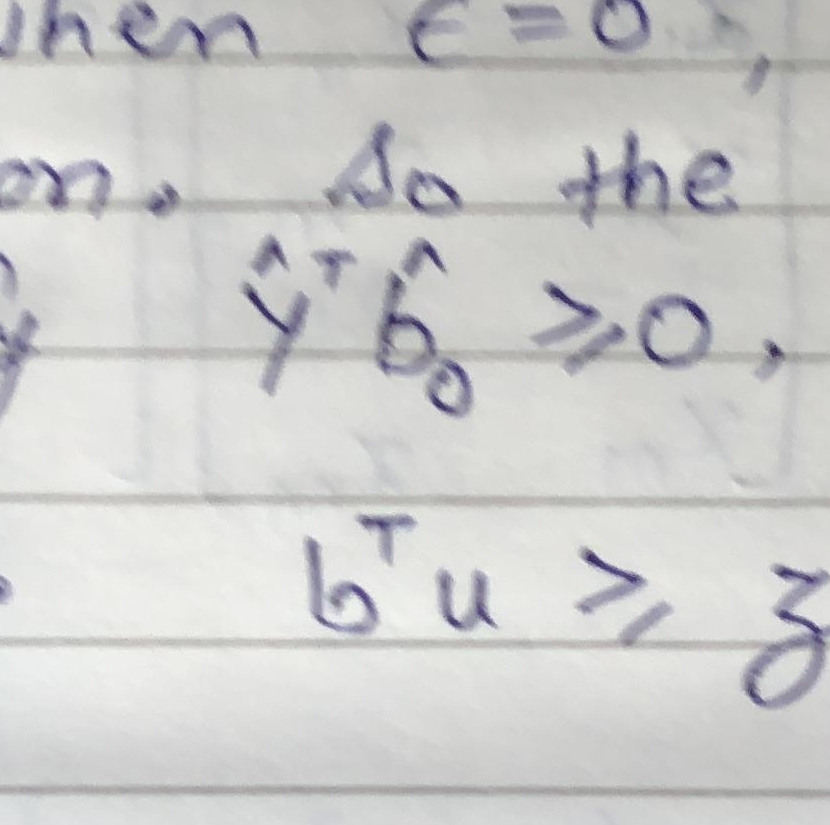 when ε = 0,
on. So the
y ŷᵀ b̂₀ ⩾ 0,
bᵀ u ⩾ z